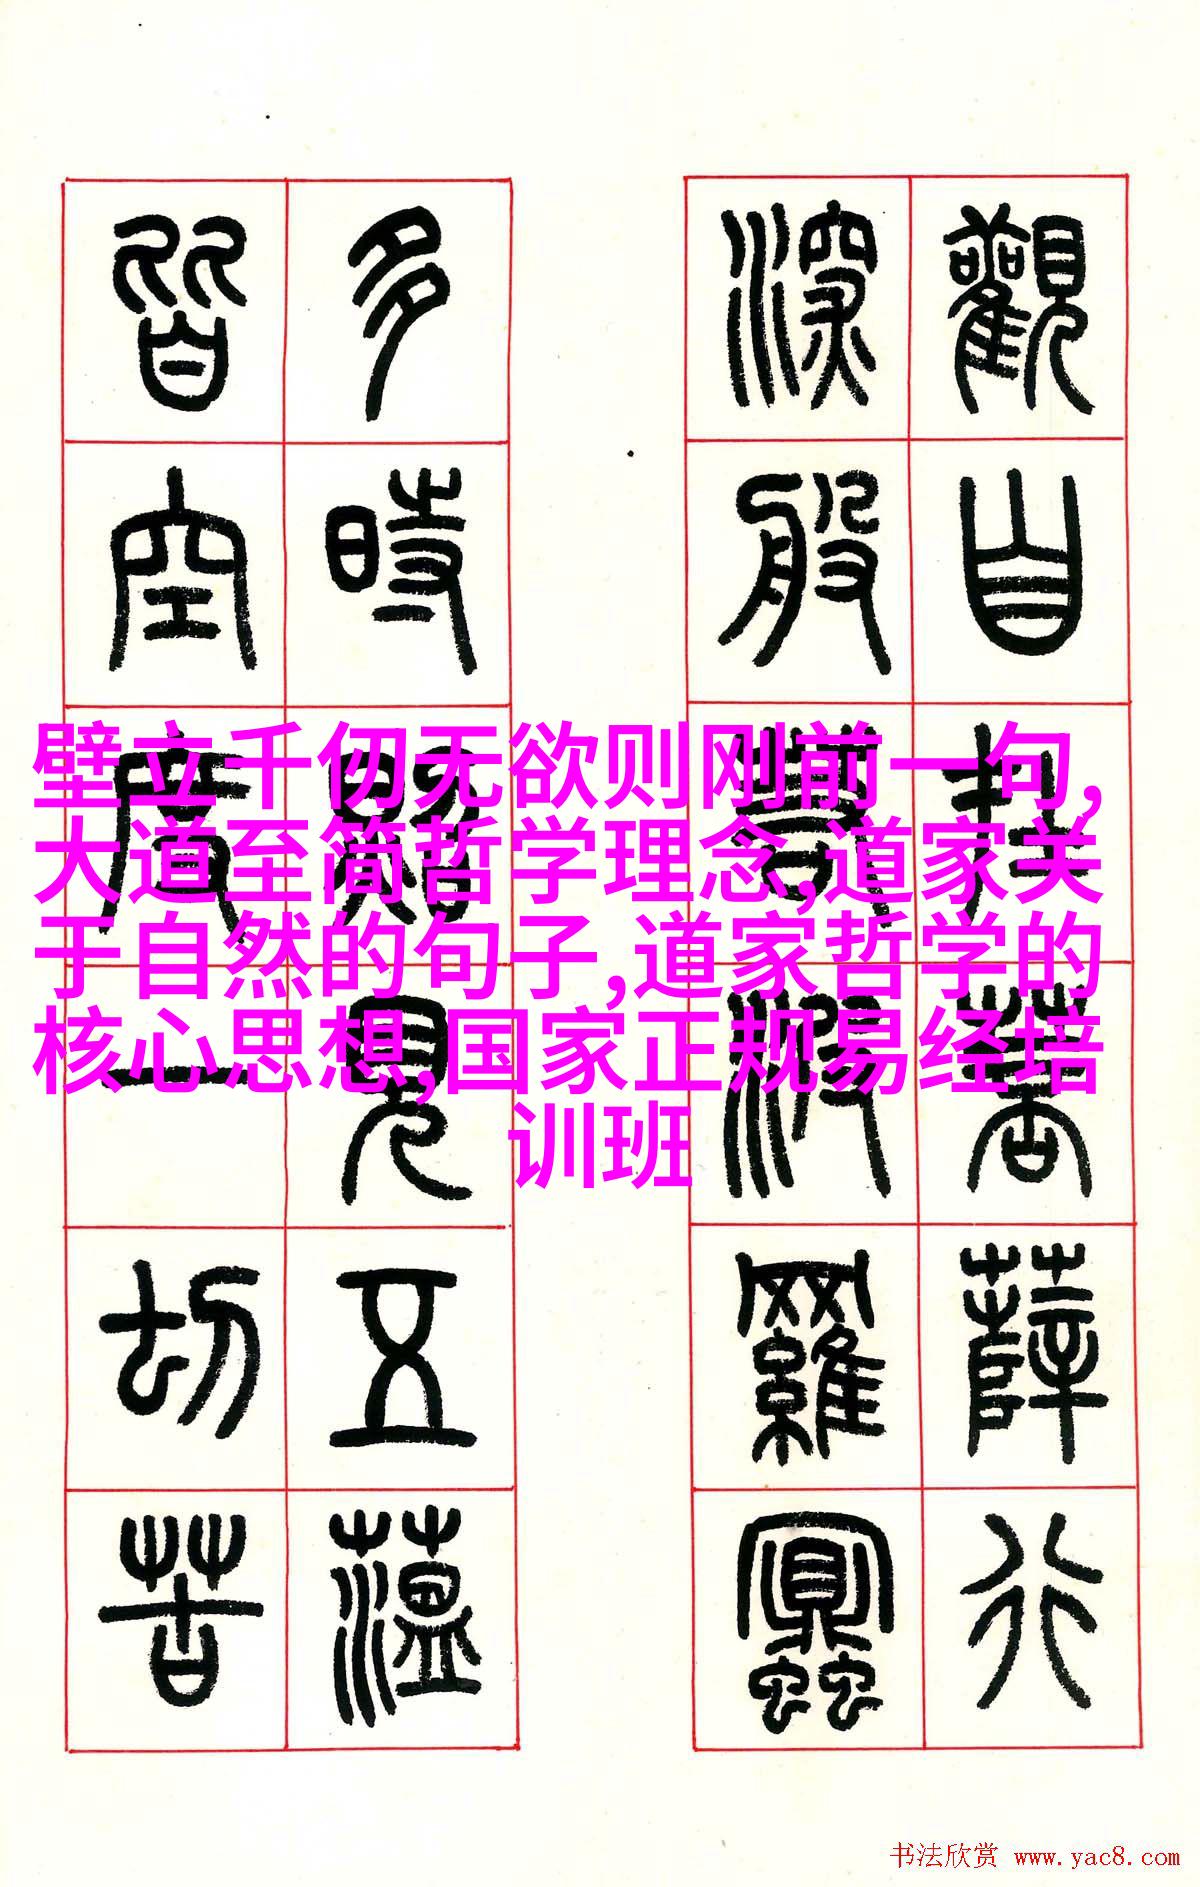 觀自在菩薩行
深般若波羅蜜
多時照見五蘊
皆空度一切苦
壁立千仞无欲则刚前一句,
大道至简哲学理念,道家关
于自然的句子,道家哲学的
核心思想,国家正规易经培
训班
书法欣赏 www.yac8.com